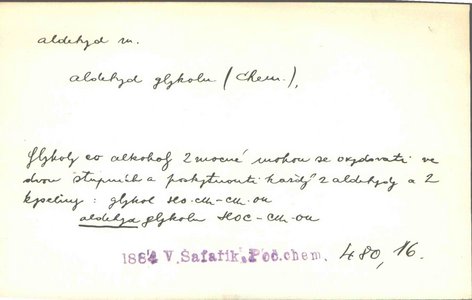 aldehyd m.
aldehyd glykolu (Chem.),
Glykoly co alkoholy 2mocné mohou se oxydovati ve
dvou stupních a poskytnouti každý 2 aldehydy a 2
kyseliny: glykol HO.CH2-CH2.OH
aldehyd glykolu HOC-CH2-OH
1884 V. Šafařík. Poč. chem. 480, 16.